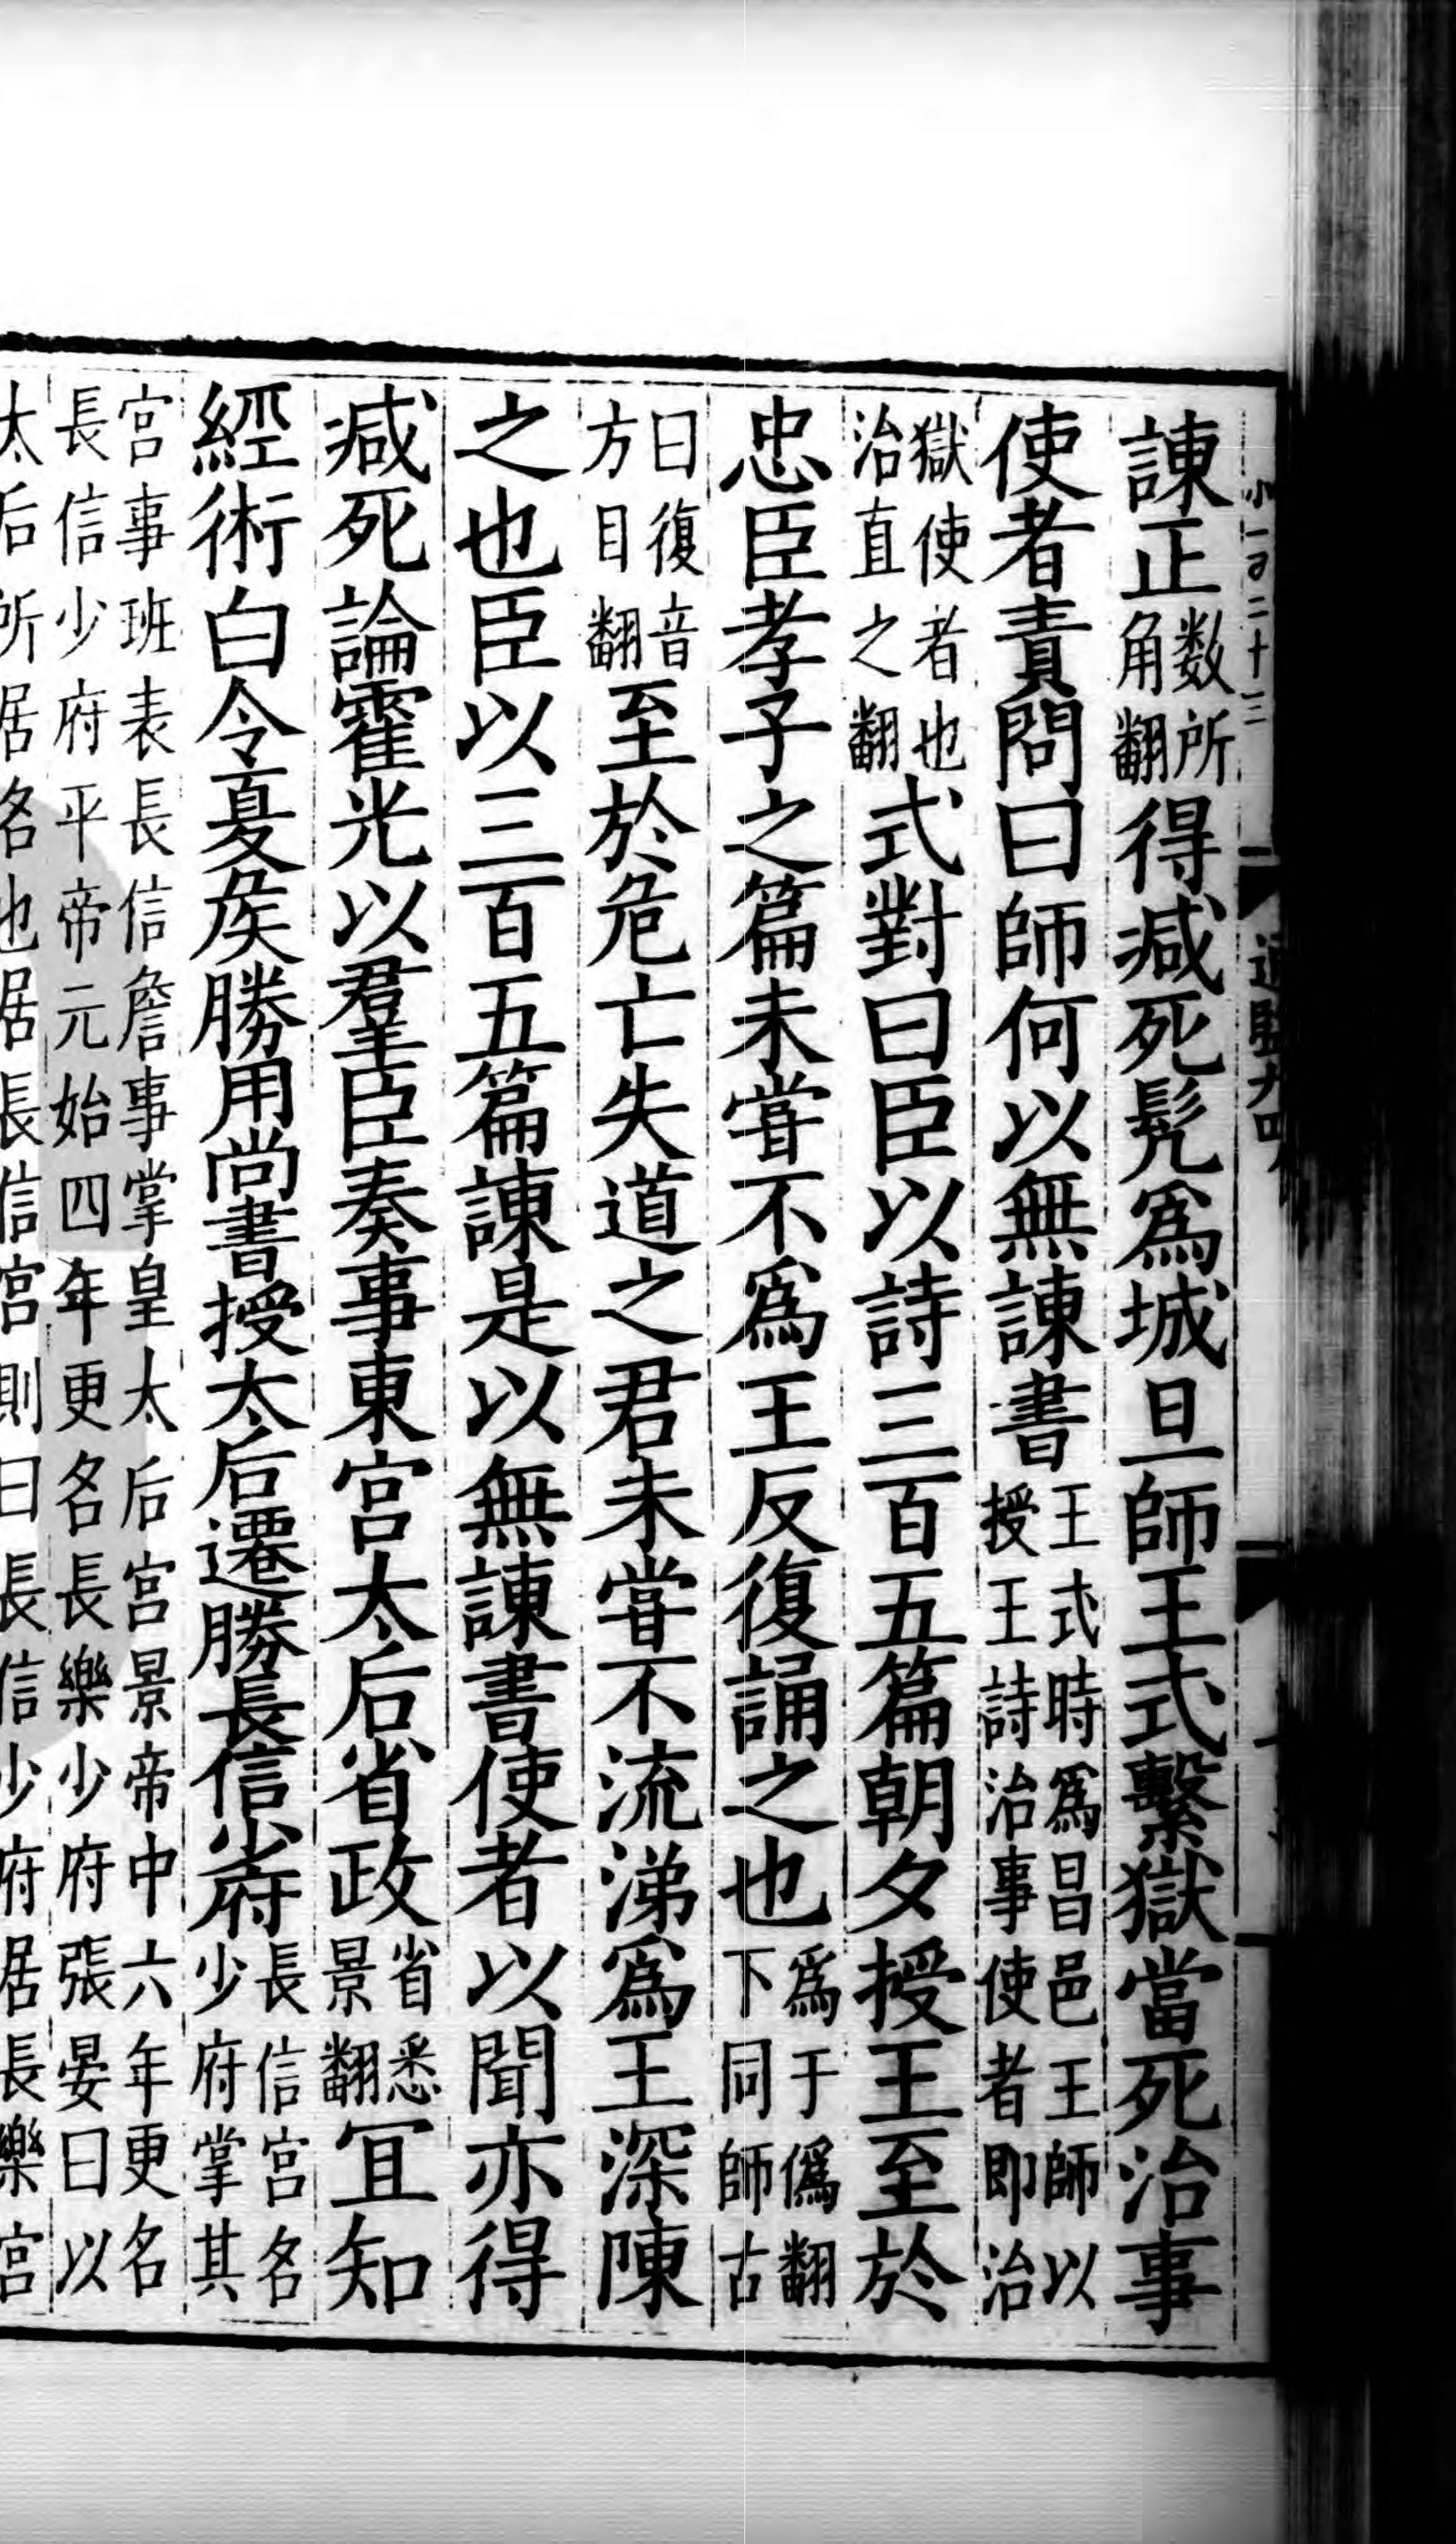 小一百二十三
諫正數所角翻得減死髠爲城旦師王式繫獄當死治事
使者責問曰師何以無諫書王式時爲昌邑王師以授王詩治事使者即治
獄使者也治直之翻式對曰臣以詩三百五篇朝夕授王至於
忠臣孝子之篇未甞不爲王反復誦之也爲于僞翻下同師古
曰復音方目翻至於危亡失道之君未甞不流涕爲王深陳
之也臣以三百五篇諫是以無諫書使者以聞亦得
減死論霍光以羣臣奏事東宮太后省政省悉景翻冝知
經術白令夏矦勝用尚書授太后遷勝長信少府長信宮名少府掌其
宮事班表長信詹事掌皇太后宮景帝中六年更名長信少府平帝元始四年更名長樂少府張晏曰以
太后所居名也居長信宮則曰長信少府居長樂宮